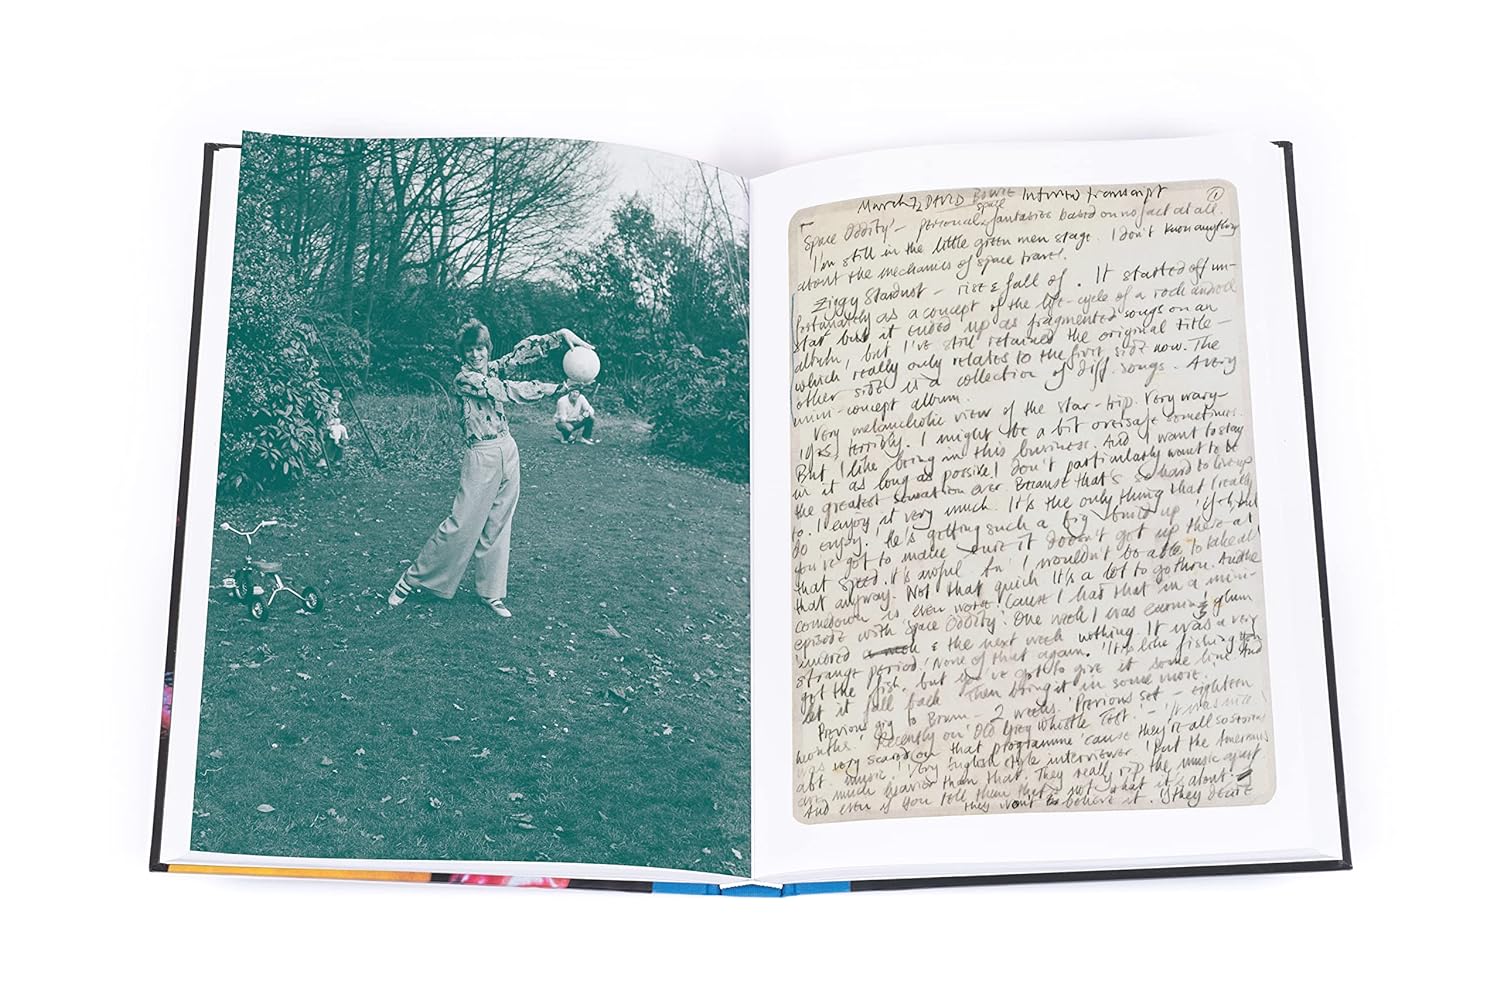 March 72 DAVID BOWIE Interview transcript 1
space
'Space Oddity' - personal fantasies based on no fact at all.
I'm still in the little green men stage. I don't know anything
about the mechanics of space travel.
Ziggy Stardust - rise & fall of. It started off un-
fortunately as a concept of the life-cycle of a rock and roll
star but it ended up as fragmented songs on an
album, but I've still retained the original title -
which really only relates to the first side now. The
other side is a collection of diff. songs. A very
mini-concept album.
Very melancholic view of the star-trip. Very wary-
yes, terribly. I might be a bit oversafe sometimes.
But I like being in this business. And I want to stay
in it as long as possible. I don't particularly want to be
the greatest sensation ever because that's so hard to live up
to. I enjoy it very much. It's the only thing that I really
do enjoy. 'He's getting such a big build up'. 'If
you've got to make sure it doesn't get up there at
that speed. It's awful I wouldn't be able to take all
that anyway. Not that quick. It's a lot to go thru. And the
comedown is even worse 'cause I had that in a mini-
episode with 'Space Oddity'. One week I was earning
& the next week nothing. It was a very
strange period. None of that again. 'It's like fishing. You
got the fish, but you've got to give it some line and
let it fall back. Then bring it in some more.
Previous gig to Brum - 2 weeks. Previous set - eighteen
months. Recently on 'Old Grey Whistle Test.' - 'It was nice.
was very scared on that programme 'cause they're all so serious
abt. music. Very English style interviewer. But the Americans
are much heavier than that. They really rip the music apart.
And even if you tell them that's not what it's about
they won't believe it. If they